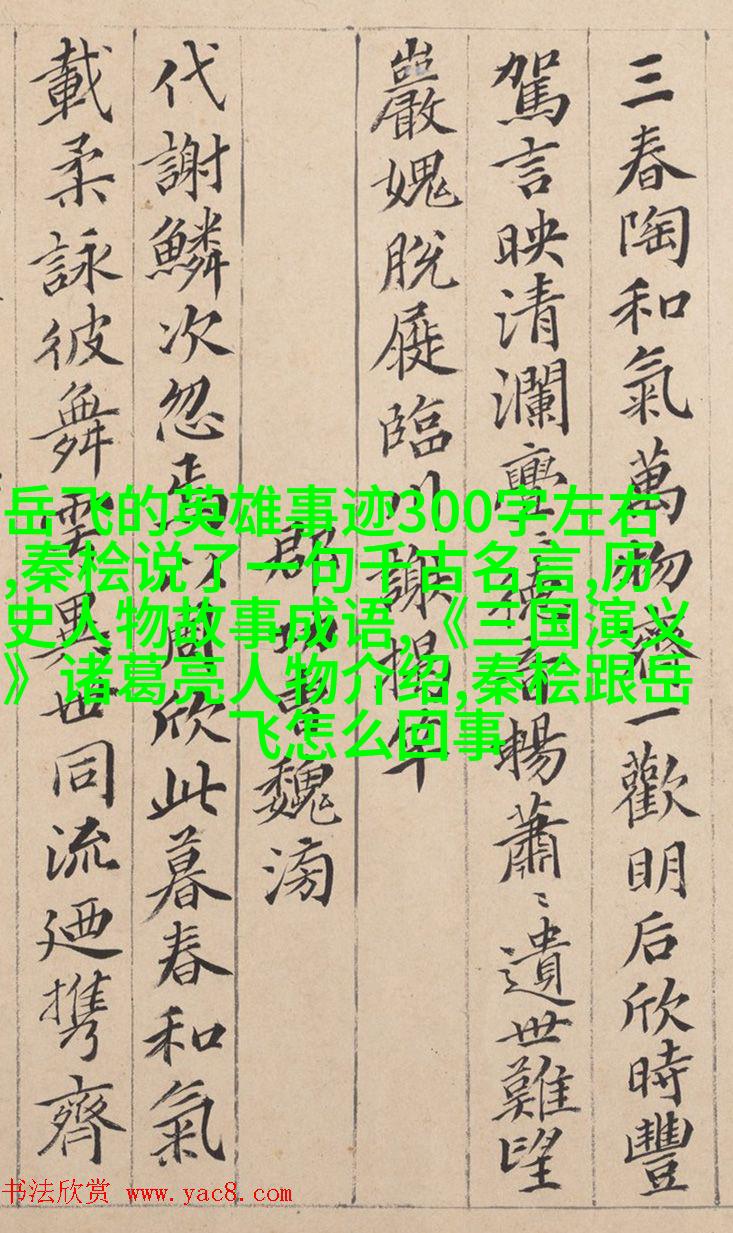 三春陶和氣萬物齊一歡明后欣時豐
駕言映清瀾亹〻德音暢蕭〻遺世難望
巖愧脫屣臨川謝揭竿
郡功曹魏滂
代謝鱗次忽焉以周欣此暮春和氣
載柔詠彼舞雩異世同流廼携齊
岳飞的英雄事迹300字左右
,秦桧说了一句千古名言,历
史人物故事成语,《三国演义
》诸葛亮人物介绍,秦桧跟岳
飞怎么回事
书法欣赏 www.yac8.com